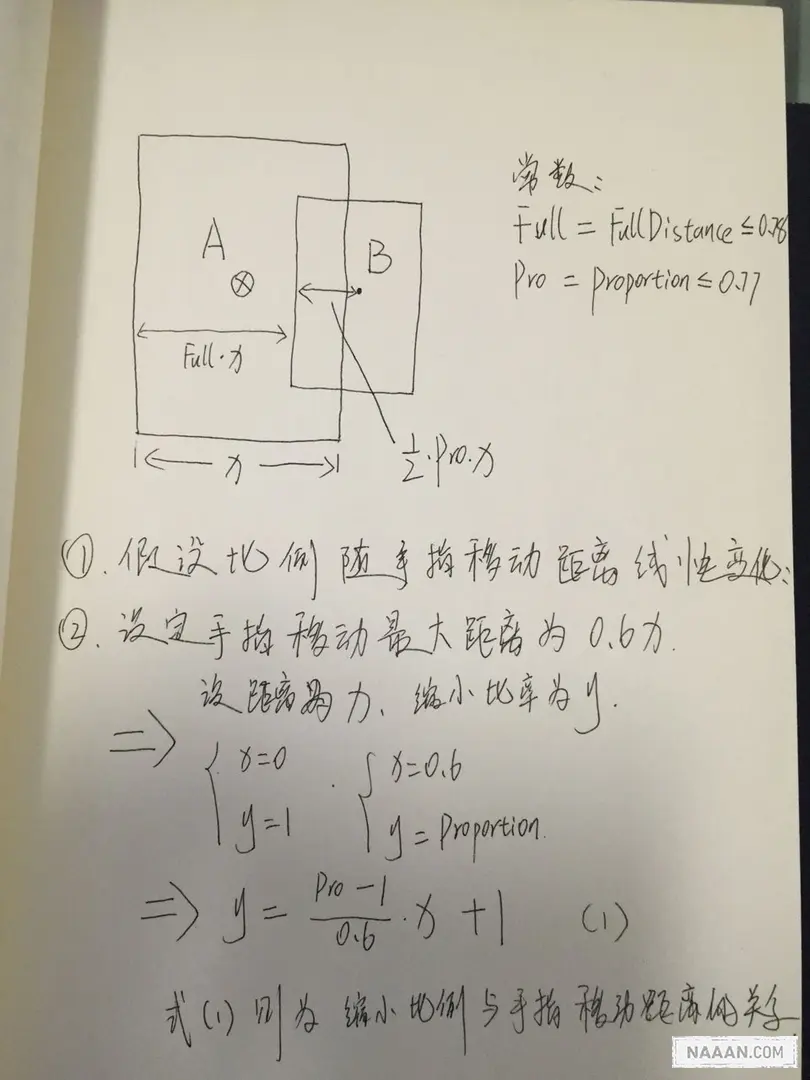 常数:
Full = FullDistance ≤ 0.78
Pro = Proportion ≤ 0.77
A
B
Full·x
x
1/2·Pro·x
①. 假设比例随手指移动距离线性变化;
②. 设定手指移动最大距离为 0.6x.
设距离为 x、缩小比率为 y.
⇒ { x=0 . { x=0.6
y=1 y=Proportion.
⇒ y = (Pro-1)/0.6 · x + 1 (1)
式(1)则为缩小比例与手指移动距离的关系
NAAAN.COM